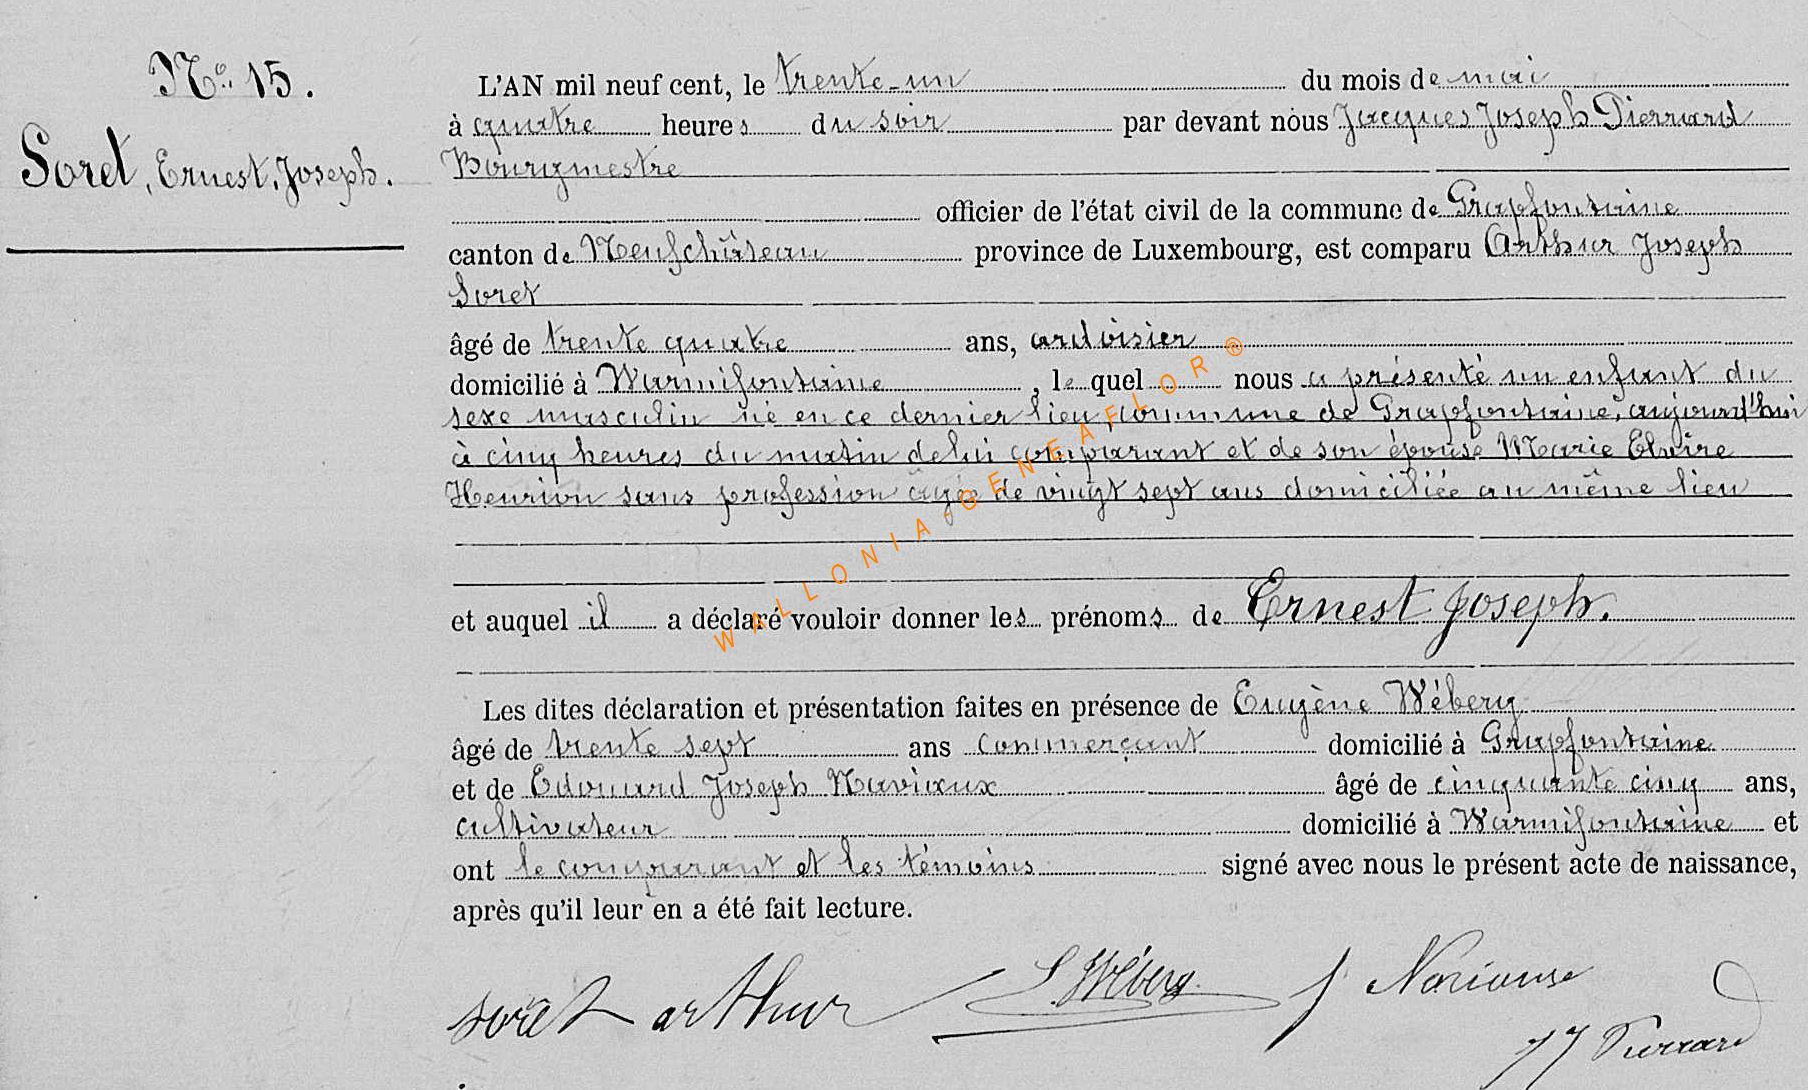 No. 15.
Soret, Ernest, Joseph.
L'AN mil neuf cent, le trente-un du mois de mai
à quatre heures du soir par devant nous Jacques Joseph Pierrard
Bourgmestre
officier de l'état civil de la commune de Grapfontaine
canton de Neufchâteau province de Luxembourg, est comparu Arthur Joseph
Soret
âgé de trente quatre ans, ardoisier
domicilié à Warmifontaine, le quel nous a présenté un enfant du
sexe masculin né en ce dernier lieu, commune de Grapfontaine, aujourd'hui
à cinq heures du matin de lui comparant et de son épouse Marie Elvire
Henrion sans profession âgée de vingt sept ans domiciliée au même lieu
et auquel il a déclaré vouloir donner les prénoms de Ernest Joseph.
Les dites déclaration et présentation faites en présence de Eugène Wéberg
âgé de trente sept ans commerçant domicilié à Grapfontaine
et de Edouard Joseph Naviaux âgé de cinquante cinq ans,
cultivateur domicilié à Warmifontaine et
ont le comparant et les témoins signé avec nous le présent acte de naissance,
après qu'il leur en a été fait lecture.
soret arthur Wéberg J Pierrard
WALLONIA-GENEAFLOR®